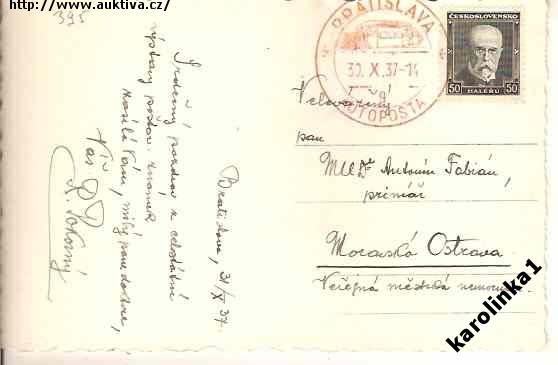 http://www.auktiva.cz/
395
Srdečný pozdrav z celostátní
výstavy poštov. známek
Vám, milý pane doktore,
Váš R. Pokorný
Bratislava, 31/X 37.
BRATISLAVA
30. X. 37-14
AUTOPOŠTA
ČESKOSLOVENSKO
50 HALÉŘŮ 50
Velevážený
pan
MUDr Antonín Fabián,
primář
Moravská Ostrava
Veřejná městská nemocnice
karolinka1